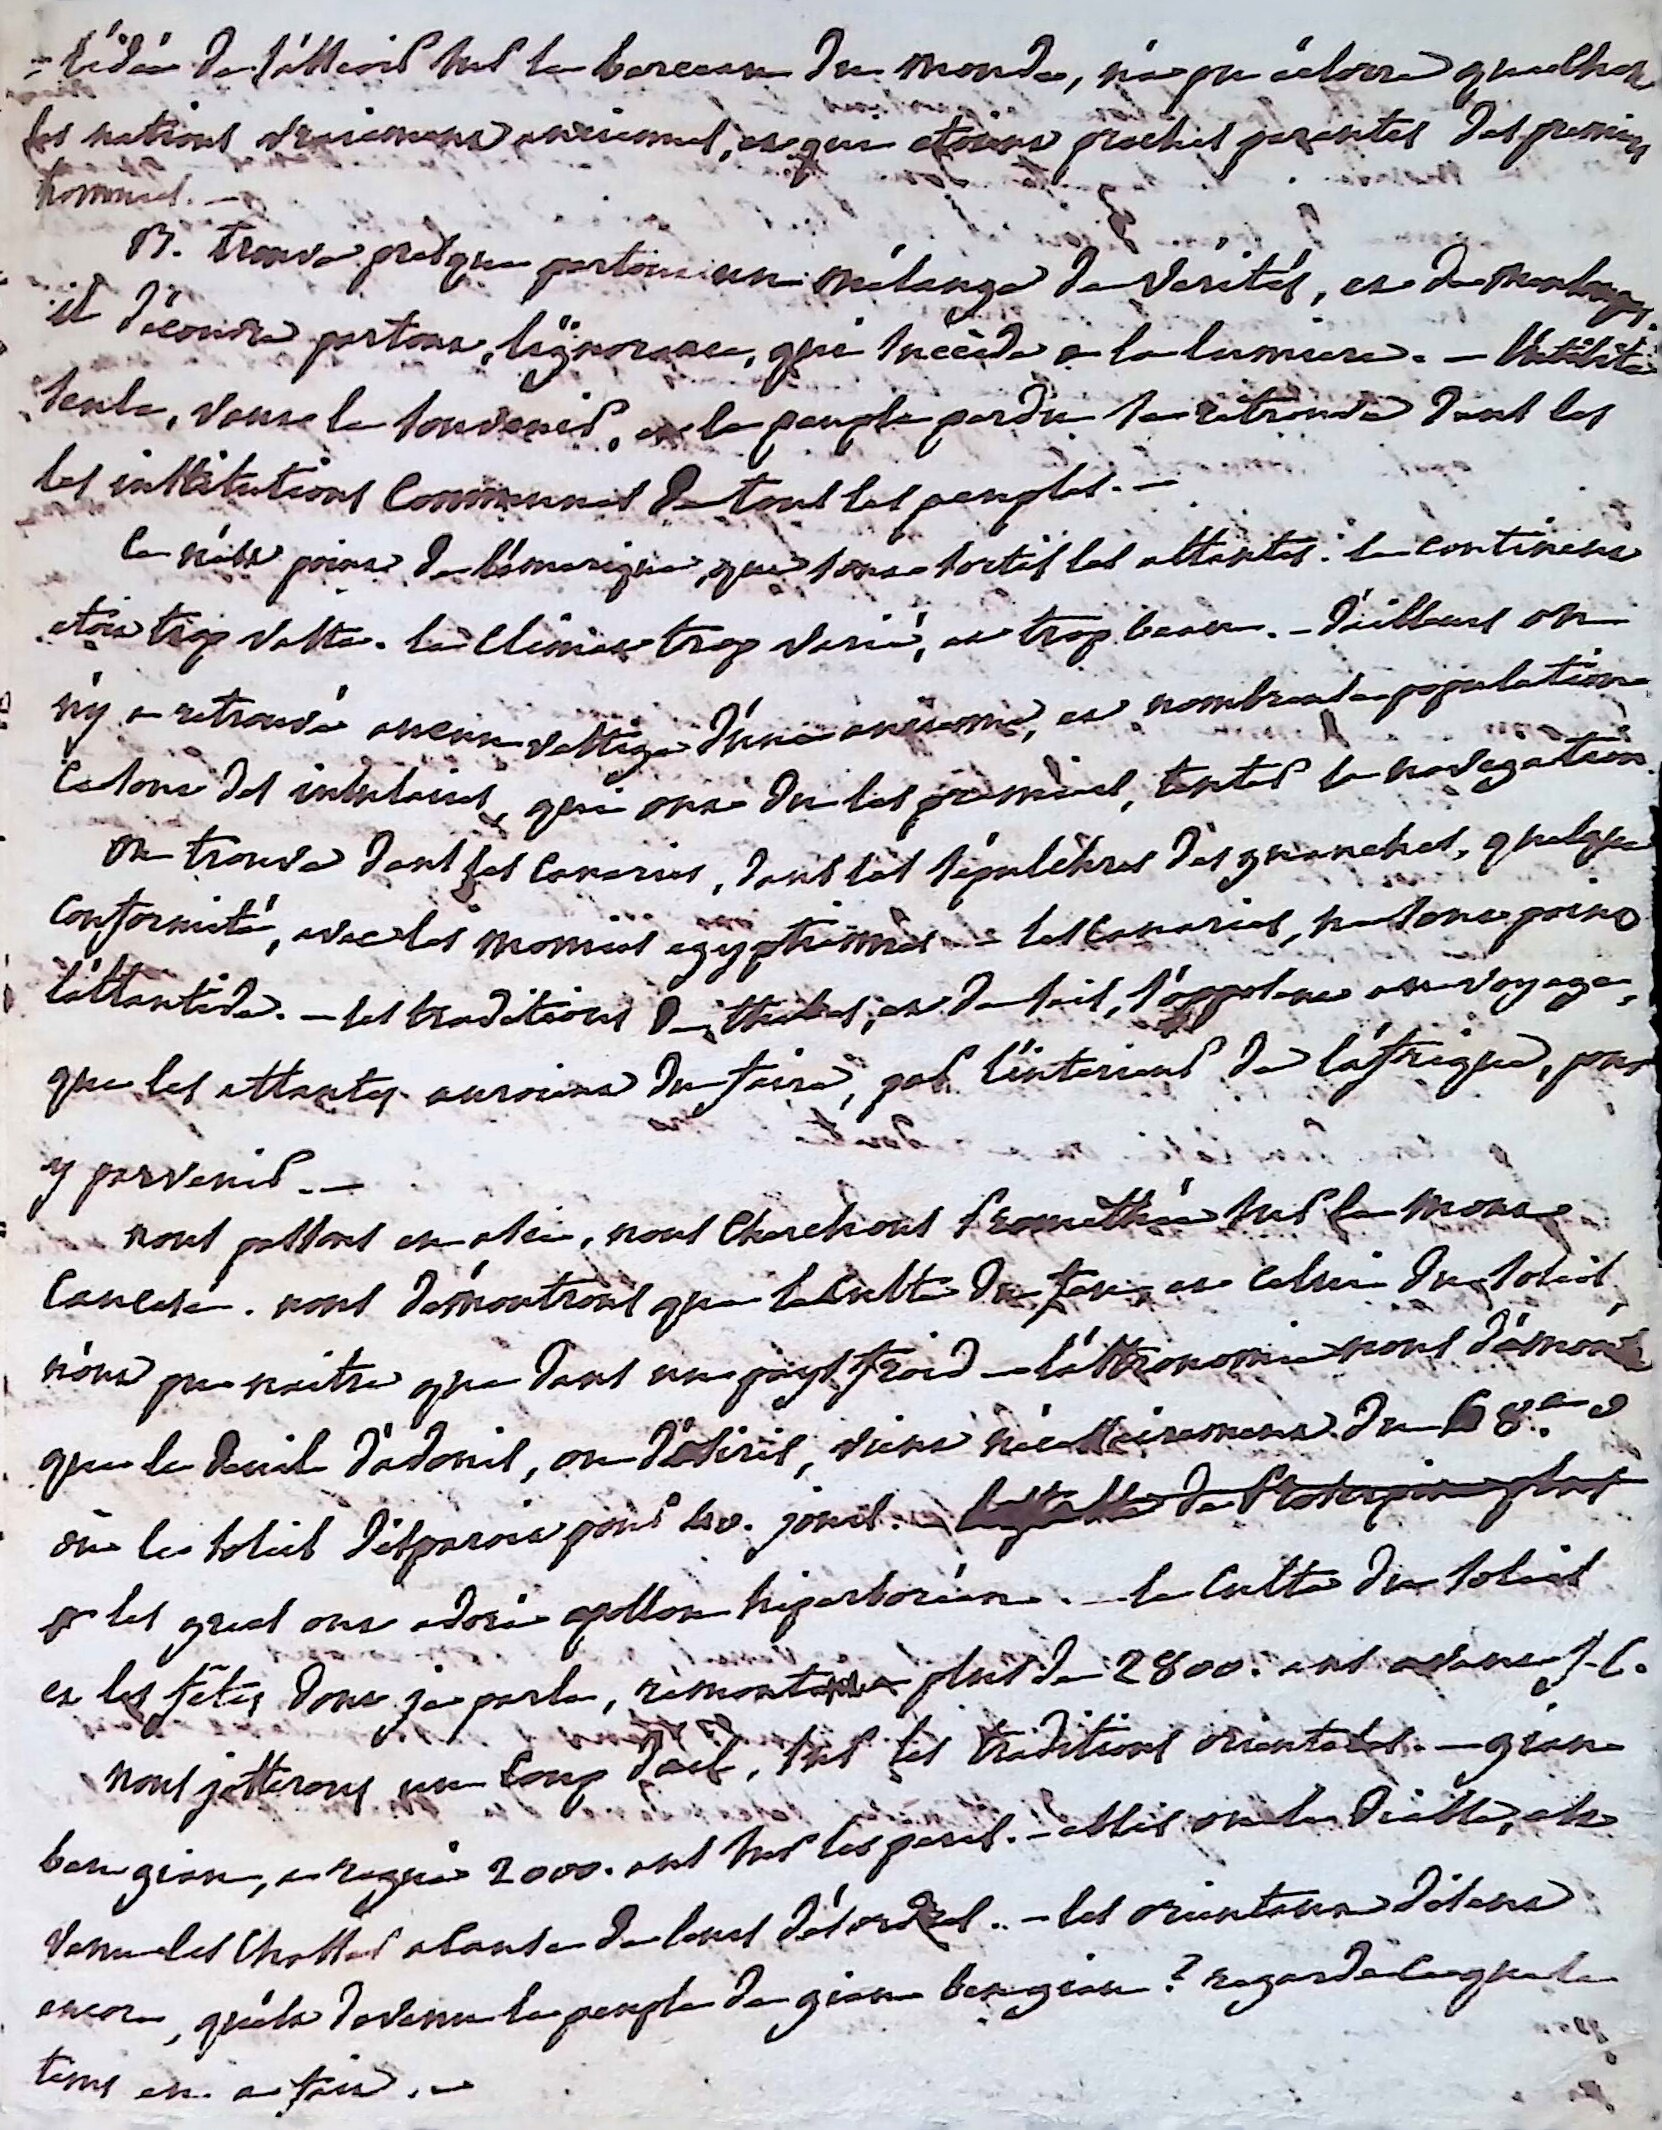 - l'idée de s'asseoir sur le berceau du monde, n'a pu éclorre que chez
les nations vraiement anciennes, et qui etoient proches parentes des premiers
hommes. —
B. trouve presque partout un mélange de vérités, et de mensonges,
il découvre partout, l'ignorance, qui succède a la lumiere. —
seule, vous le souvenir, et le peuple perdu se retrouve dans les
les institutions communes de tous les peuples. —
Ce n'est point de l'amerique, que sont sortis les atlantes : le continent
etoit trop vaste. le climat trop varié, et trop beau. — d'ailleurs on
n'y a retrouvé aucun vestige d'une ancienne, et nombreuse population
Ce sont des insulaires, qui ont du les premiers, tenter la navegation
on trouve dans les Canaries, dans les sépulchres des guanches, quelque
conformité, avec les momies egyptiennes — les Canaries, ne sont point
l'atlantide. — les traditions de thebes, et de sais, s'opposent au voyage,
que les atlantes auroient du faire, par l'interieur de l'afrique, pour
y parvenir. —
nous passons en asie, nous cherchons Promethée sur le mont
Caucase. nous démontrons que le culte du feu, et celui du soleil,
n'ont pu naitre que dans un pays froid — l'astronomie nous démontre
que le deuil d'adonis, ou d'osiris, vient nécessairement du 68.e °
où le soleil disparoit pour 40. jours. — de Proserpine plus
les grecs ont adoré apollon hiperboréen. — le culte du soleil
et les fêtes dont je parle, remontent plus de 2800. ans avant J.C.
nous jetterons un coup d'œil, sur les traditions orientales. — gian
ben gian, a regné 2000. ans sur les peris. — eblis ou le diable, est
venu les chasser a cause de leurs désordres. — les orientaux disent
encore, qu'est devenu le peuple de gian ben gian ? regarde ce que le
tems en a fait. —